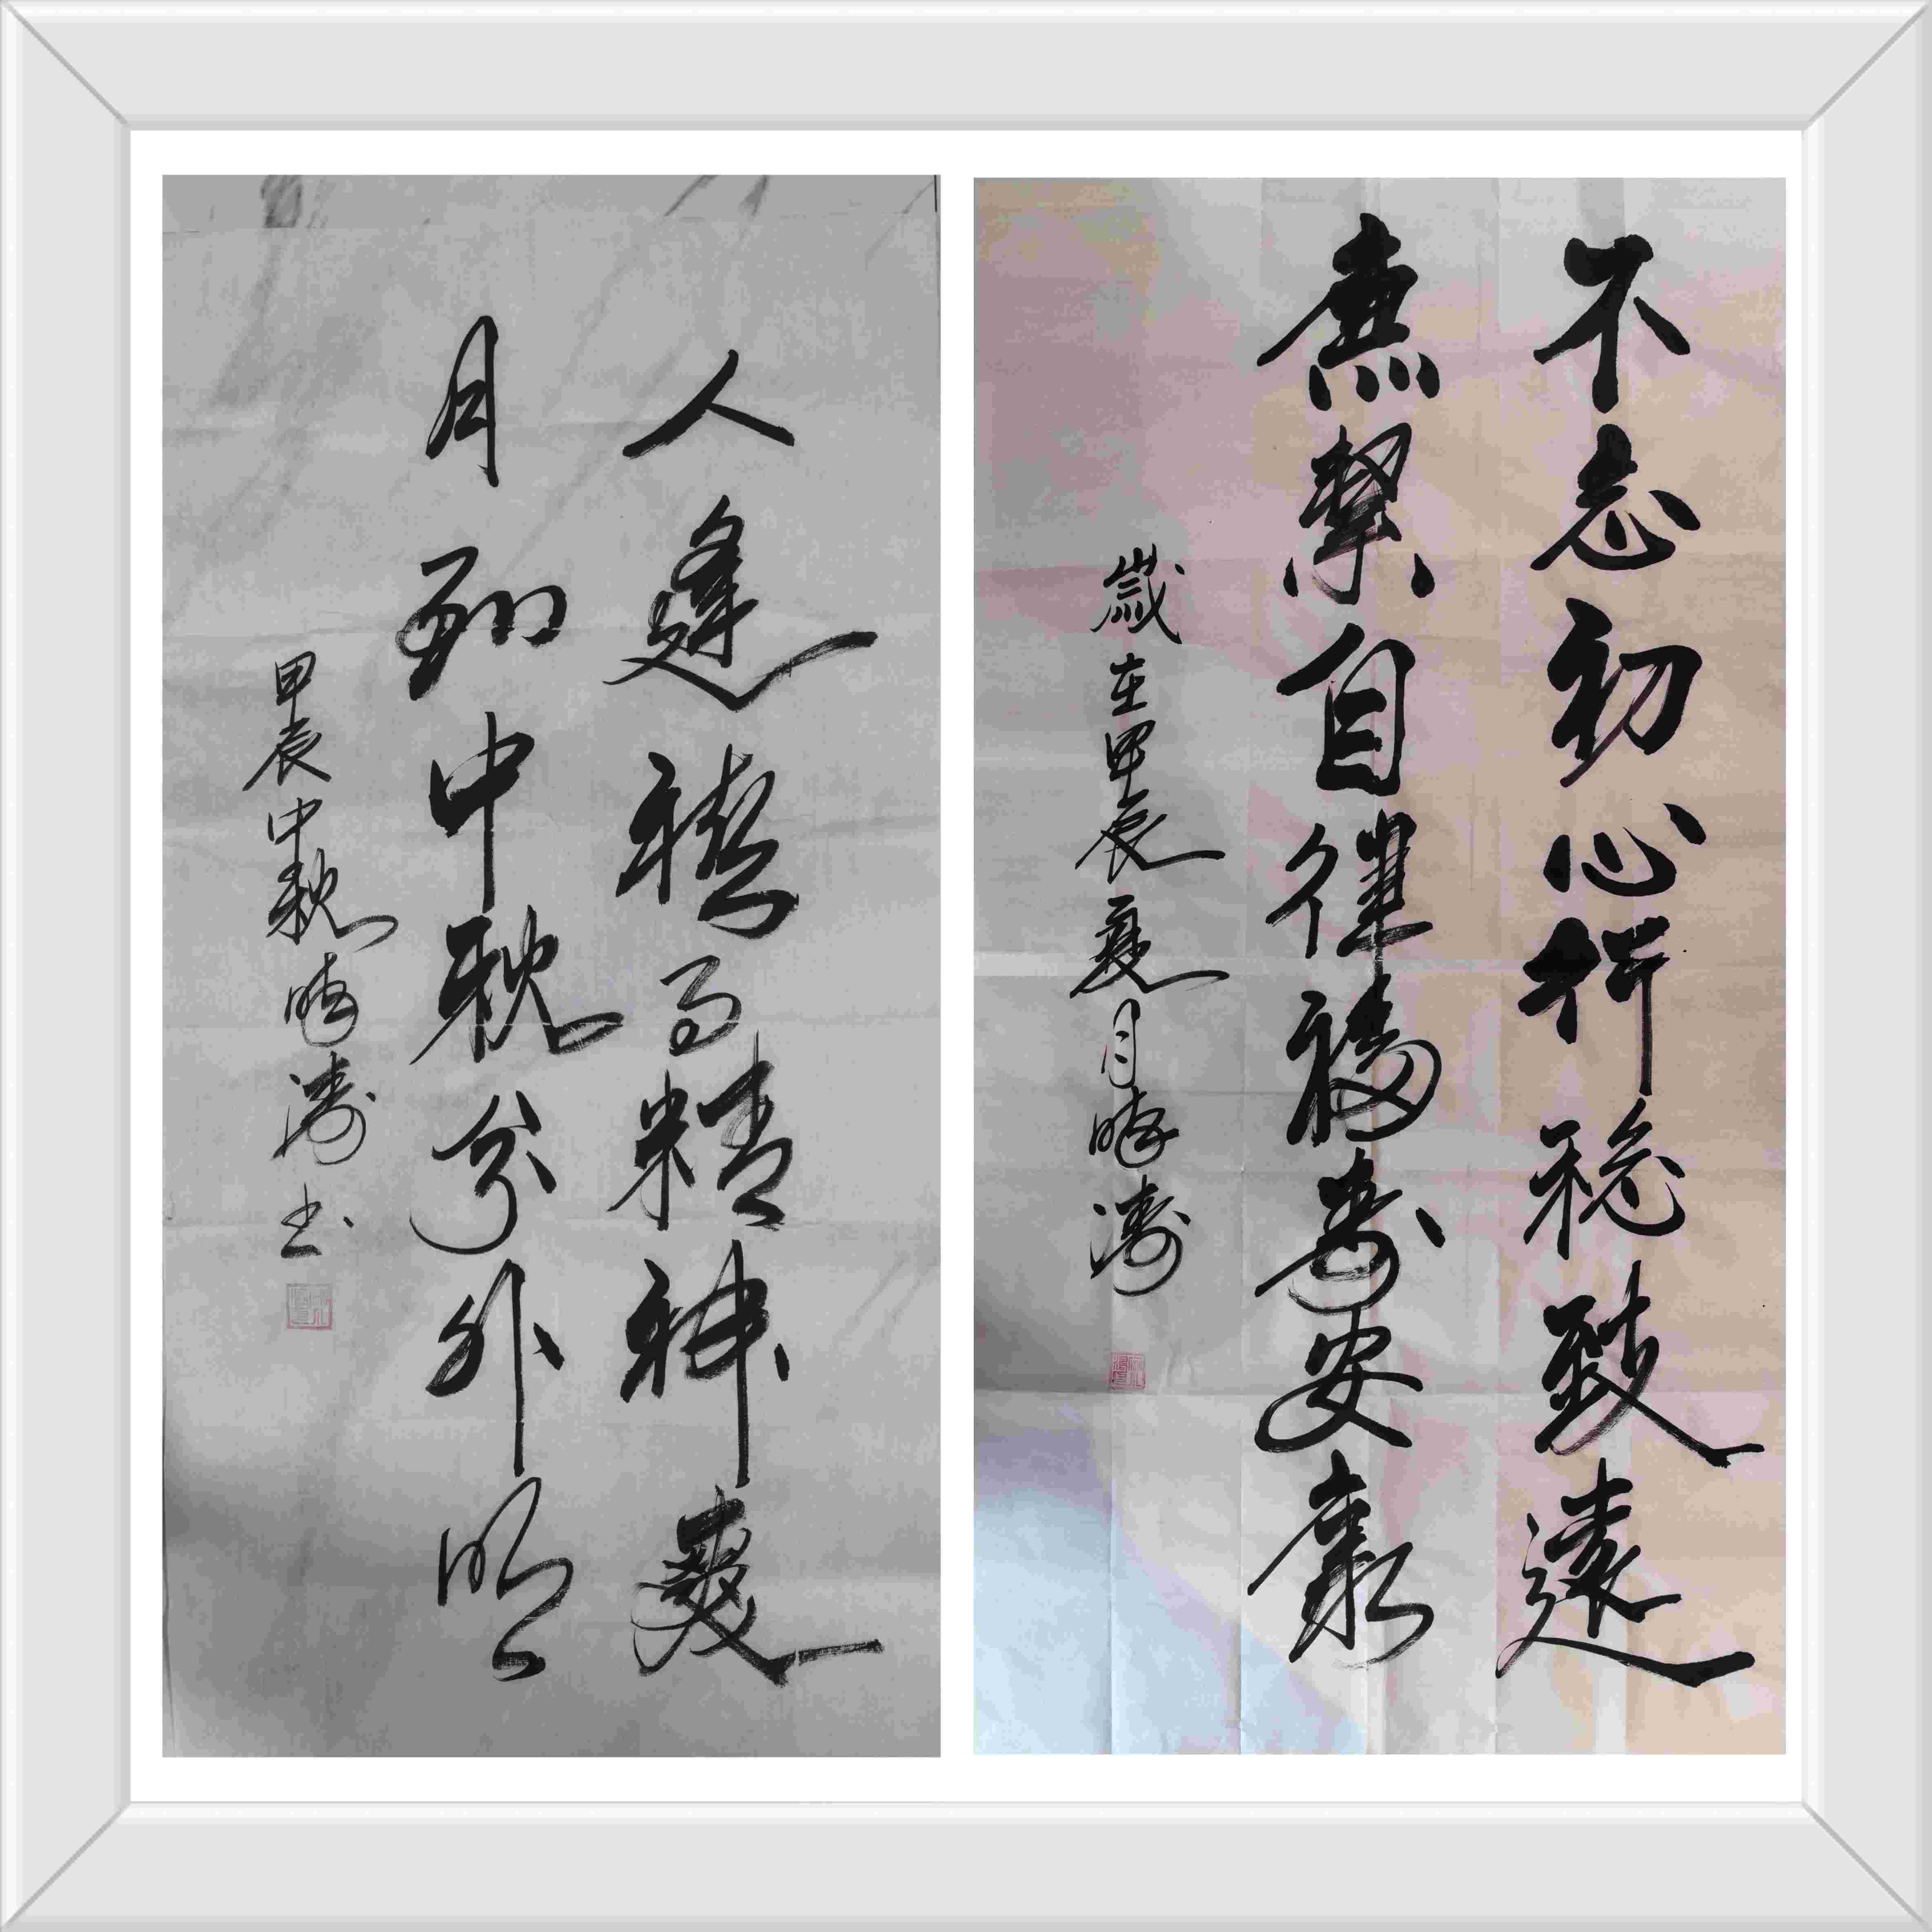 不忘初心行稳致遠
廉潔自律福寿安康
歲在甲辰夏月晓涛
人逢禧事精神爽
月到中秋分外明
甲辰中秋晓涛书